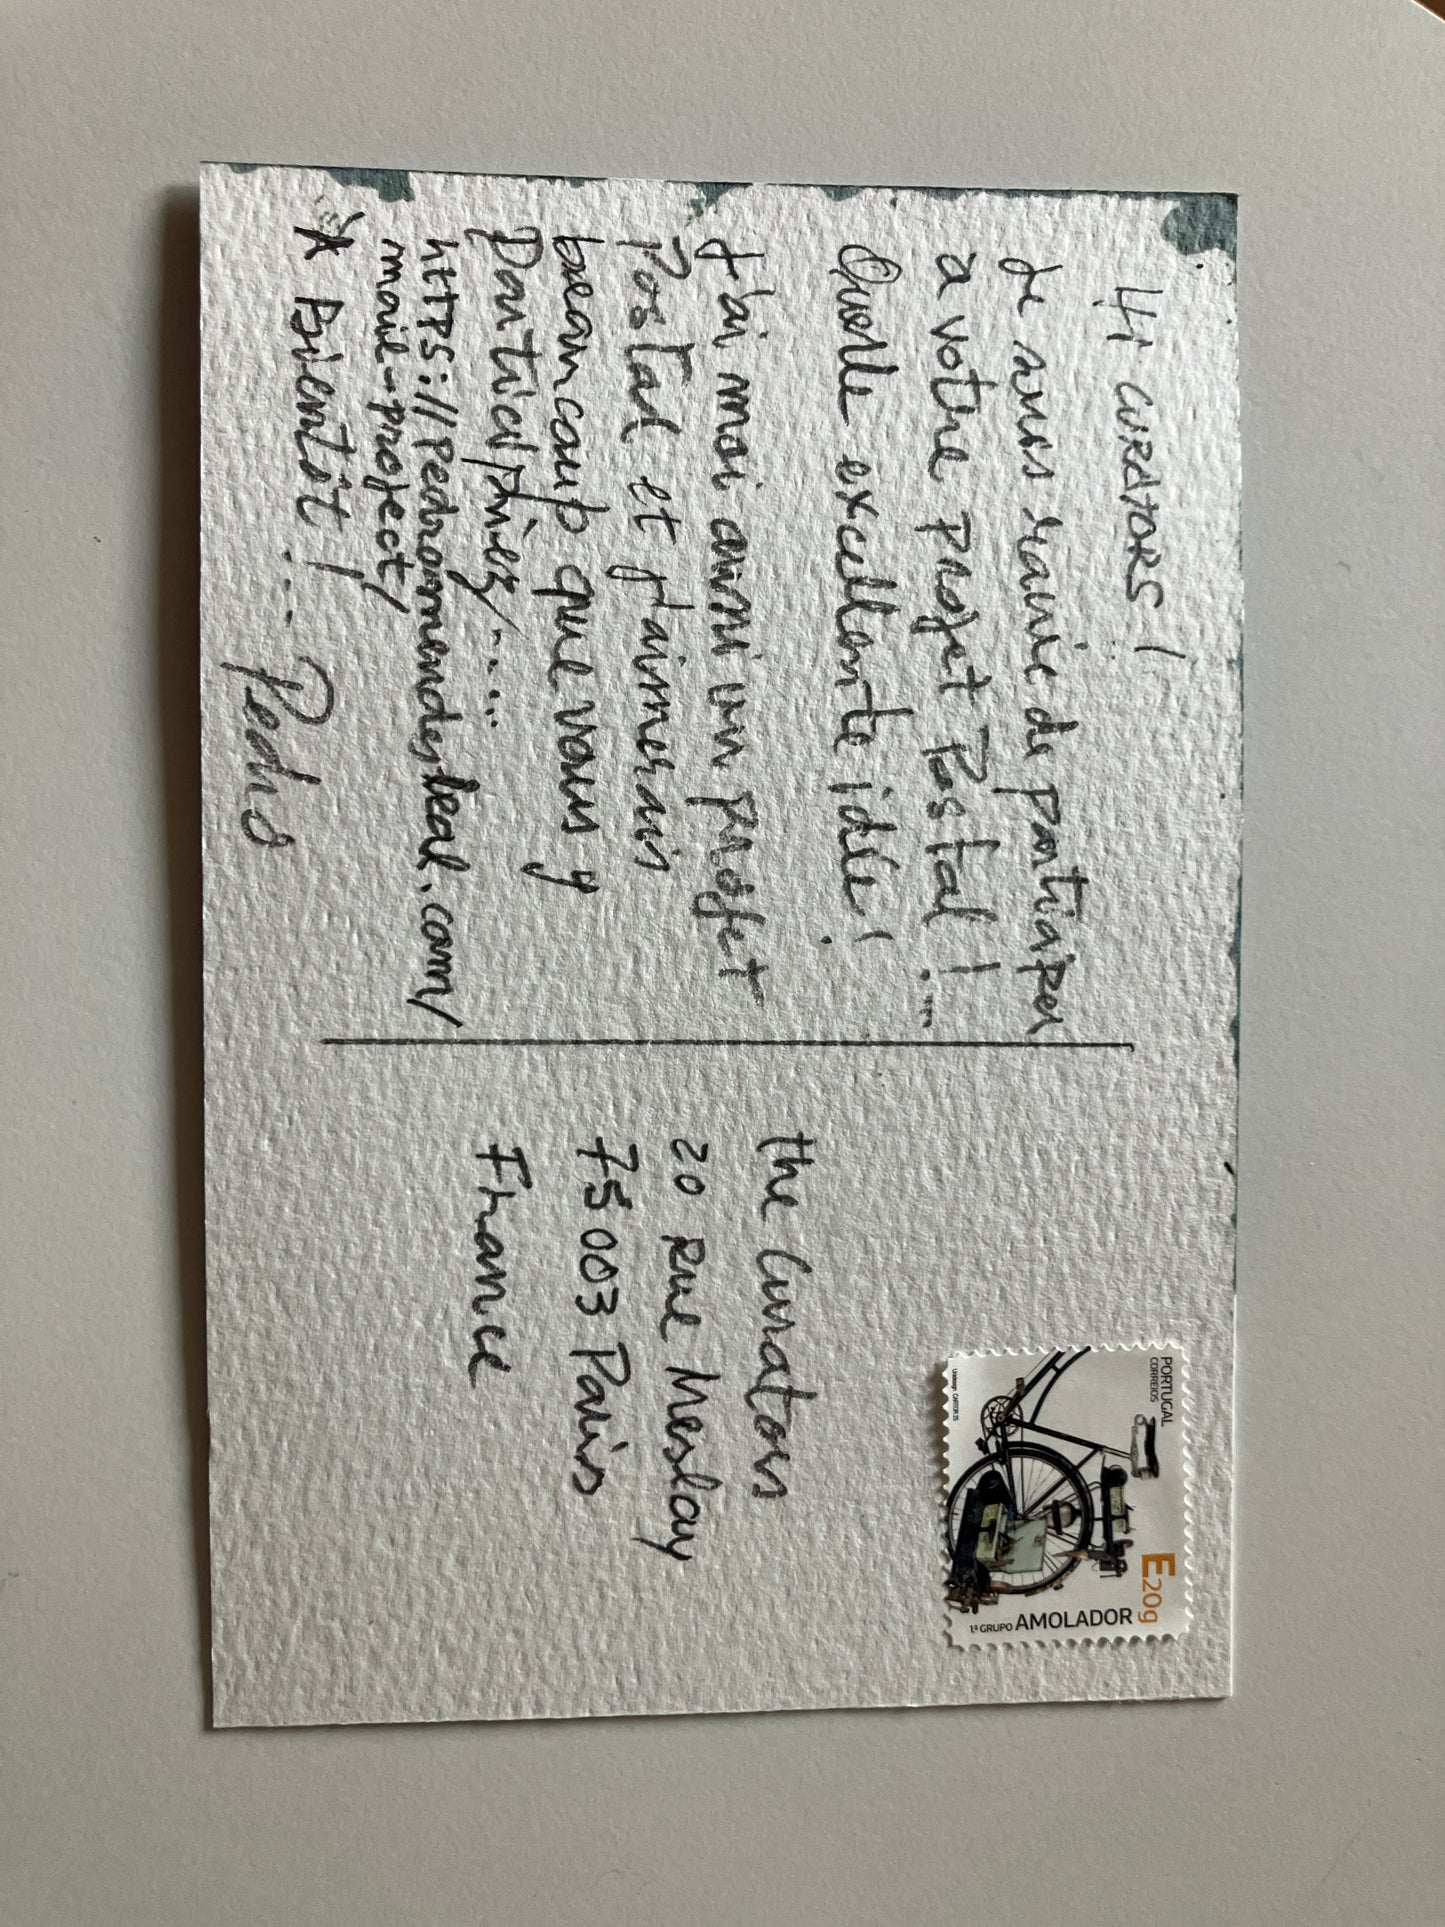 Hi CURATORS!
Je suis ravie de participer
a votre projet Postal!...
Quelle excellente idée!
J'ai moi aussi un projet
Postal et j'aimerais
beaucoup que vous y
Participiez/.....
https://pedromendesleal.com/
movie-project/
À Bientôt!...
Pedro
the Curators
20 Rue Meslay
75003 Paris
France
PORTUGAL
CORREIOS
E20g
1.º GRUPO AMOLADOR